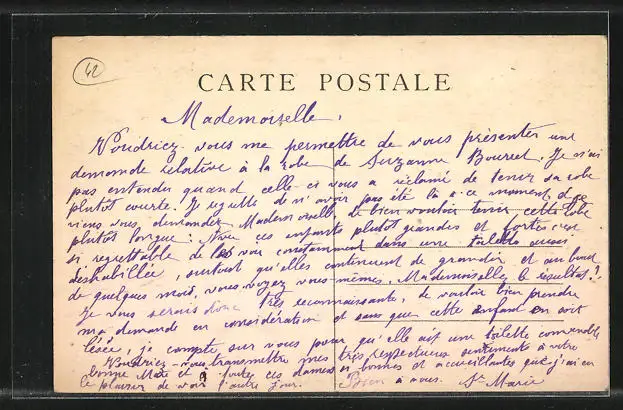 42
CARTE POSTALE
Mademoiselle,
Voudriez-vous me permettre de vous présenter une
demande relative à la robe de Suzanne Bourel. Je n'ai
pas entendu quand celle-ci vous a réclamé de tenir sa robe
plutôt courte. Je regrette de n'avoir pas été là à ce moment. Je
viens vous demander Mademoiselle, de bien vouloir tenir cette robe
plutôt longue : Avec ces enfants plutôt grandes et fortes c'est
si regrettable de les voir constamment dans une toilette aussi
déshabillée, surtout qu'elles continuent de grandir et au bout
de quelques mois, vous voyez vous-mêmes, Mademoiselle, le résultat !
Je vous serais donc très reconnaissante, de vouloir bien prendre
ma demande en considération et sans que cette enfant en soit
lésée, je compte sur vous pour qu'elle ait une toilette convenable
Voudriez-vous transmettre mes très respectueux sentiments à votre
bonne Mère et à toutes ces dames si bonnes et accueillantes que j'ai eu
le plaisir de voir l'autre jour. Bien à vous. Sr Marie